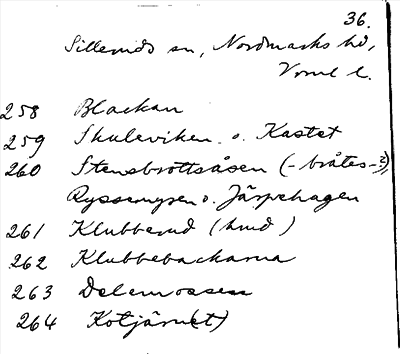 36.
Silleruds sn, Nordmarks hd,
Vrml l.
258 Blackan
259 Skuleviken o. Kastet
260 Stensbrottsåsen (-bråtes-?),
Ryssemyren o. Järpehagen
261 Klubberud (hmd)
262 Klubbebackarna
263 Delemossen
264 Kotjärn(et)